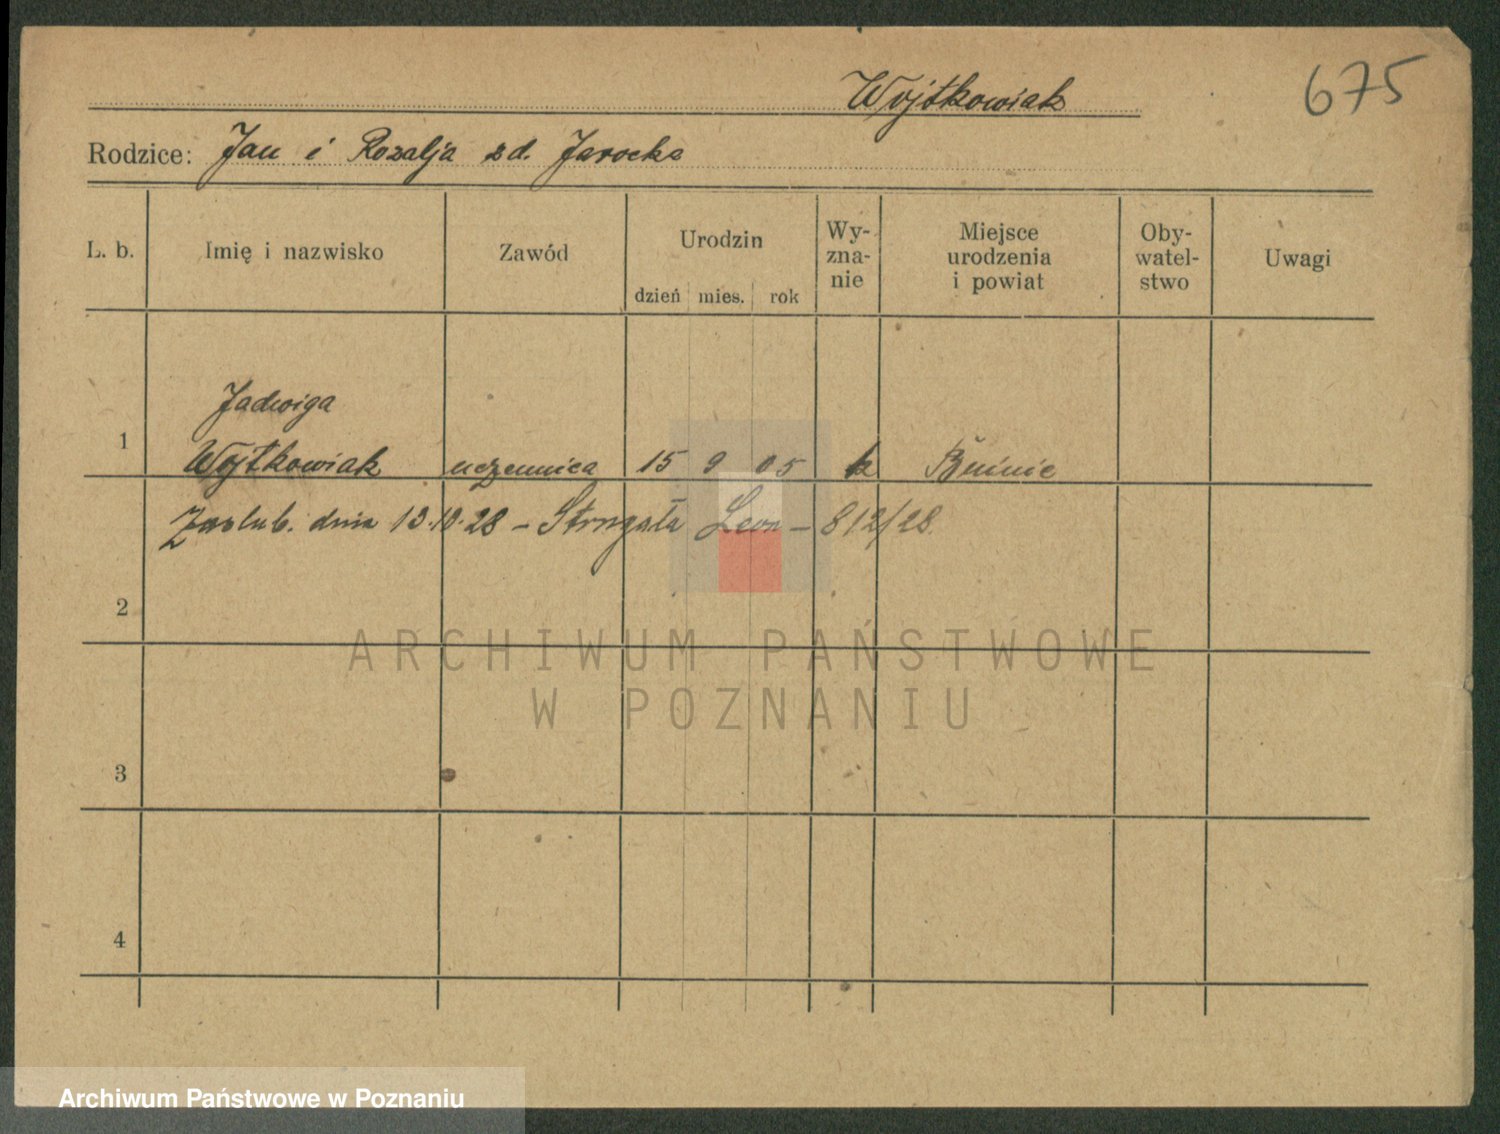 Wojtkowiak
675
Rodzice: Jan i Rozalja zd. Jarocka
L. b.
Imię i nazwisko
Zawód
Urodzin
dzień mies. rok
Wy-
zna-
nie
Miejsce
urodzenia
i powiat
Oby-
watel-
stwo
Uwagi
Jadwiga
1 Wojtkowiak uczennica 15 9 05 k
Zaslub. dnia 13.10.28 – Strugała Leon – 812/28
2
ARCHIWUM PAŃSTWOWE
W POZNANIU
3
4
Archiwum Państwowe w Poznaniu